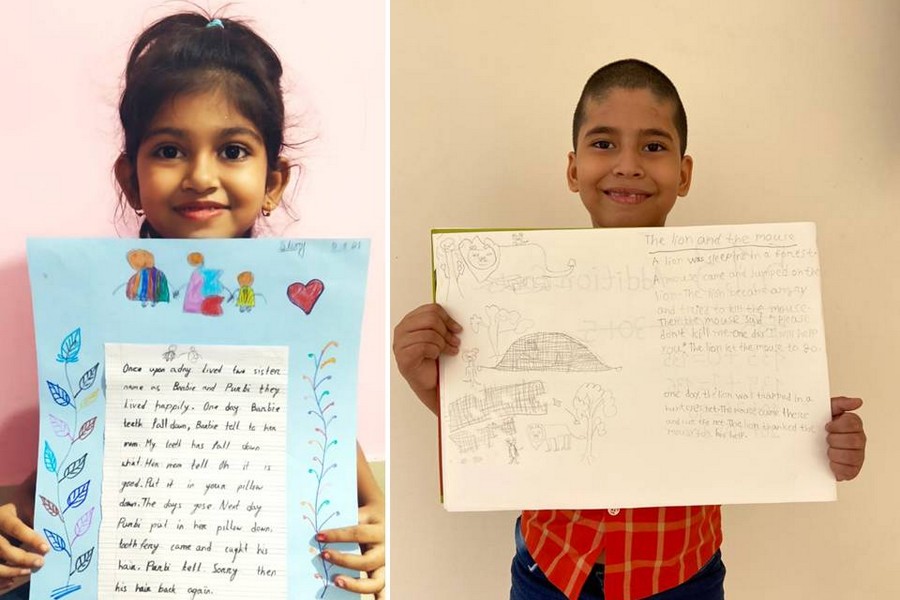 Story
Once upon a day lived two sister
name as Barbie and Punbi they
lived happily. One day Barbie
teeth fall down, Barbie tell to her
mom. My teeth has fall down
what. Her mom tell Oh it is
good. Put it in your pillow
down. The days gose Next day
Punbi put in her pillow down.
tooth ferry came and caght his
hair. Punbi tell Sorry then
his hair back again.
The lion and the mouse
A lion was sleeping in a forest.
A mouse came and Jumped on the
lion. The lion became angry
and tried to kill the mouse.
Then the mouse said "please
don't kill me one day I will help
you." The lion let the mouse to go.
one day the lion was trapped in a
hunters net. The mouse came there
and cut the net. The lion thanked the
mouse for his help.